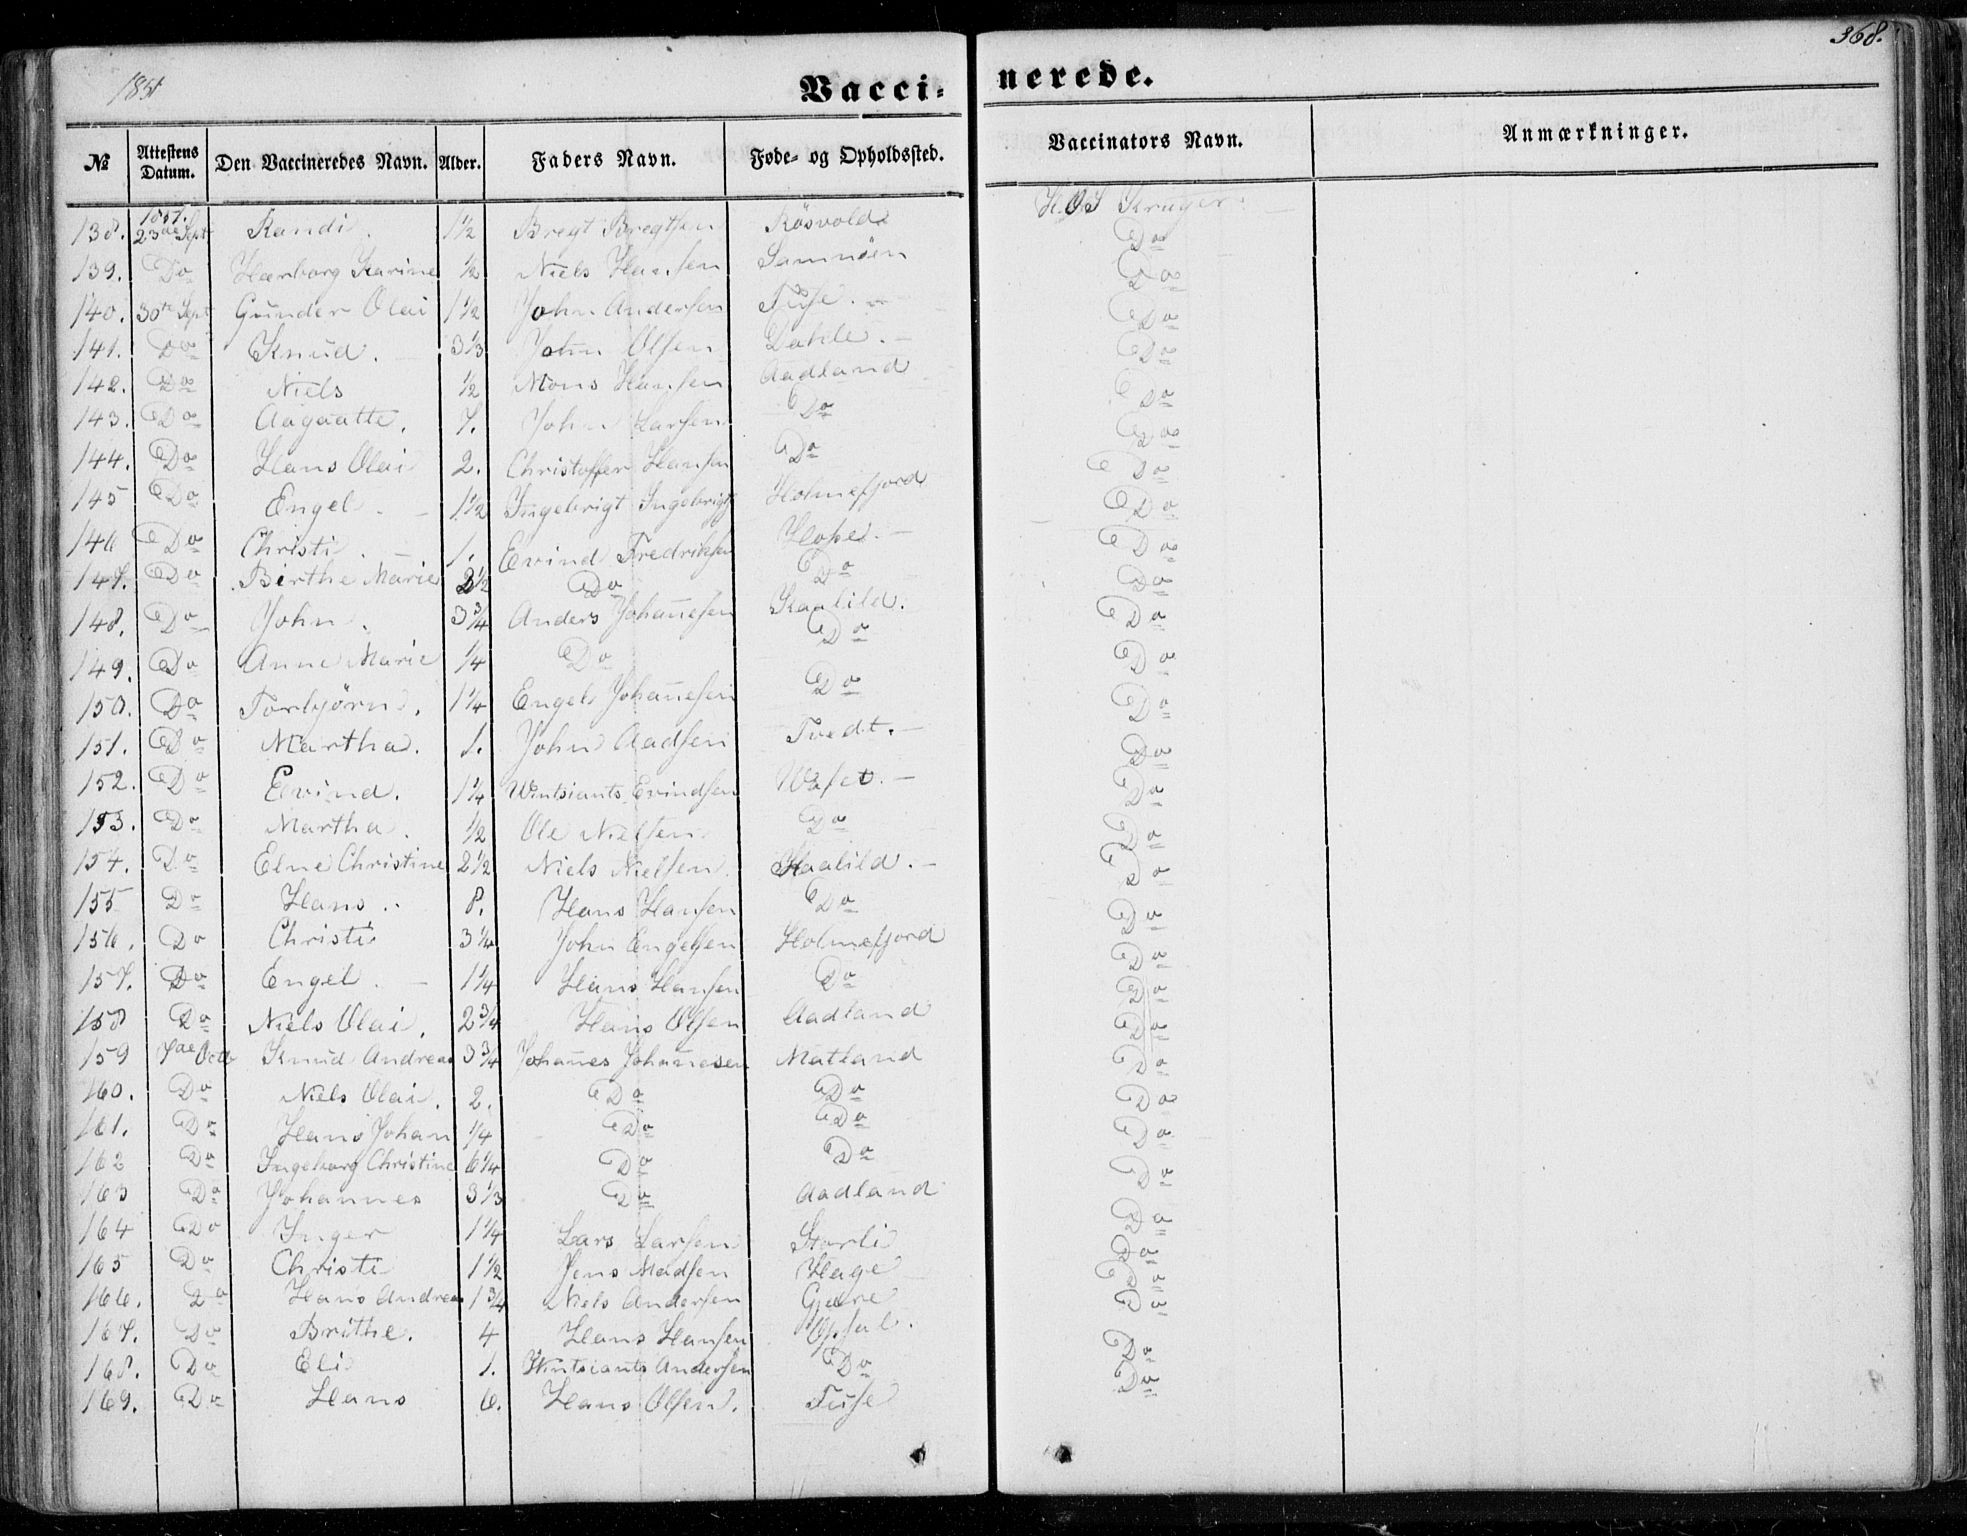 368.
1851
Vacci- nerede.
№ Attestens Datum. Den Vaccineredes Navn. Alder. Faders Navn. Føde- og Opholdssted. Vaccinators Navn. Anmærkninger.
138. 1851. 23de Sept Randi. 1½ Bregt Bregtsen Rösvold Krüger
139. Do Herborg Karine ½ Niels Hansen Samnöen Do
140. 30te Sept Gunder Olai 1½ John Andersen Tuse. Do
141. Do Knud. 3⅓ John Olsen Dahle. Do
142. Do Niels ½ Mons Hansen Aadland Do
143. Do Aagaatte. 7. John Larsen Do Do
144. Do Hans Olai 2. Christoffer Hansen Do Do
145 Do Engel. 1½ Ingebrigt Ingebrigts Holmefjord Do
146 Do Christi. 1. Evind Fredriksen Hope. Do
147. Do Birthe Marie 3½ Do Do Do
148. Do John. 3¾ Anders Johan̄esen Skaalild. Do
149. Do Anne Marie ¼ Do Do Do
150. Do Torbjörn. 1¼ Engel Johan̄esen Do Do
151. Do Martha. 1. John Aadsen Tvedt. Do
152. Do Evind. 1¼ Wintsiants Evindsen Do
153. Do Martha. ½ Ole Nielsen Do Do
154. Do Elne Christine 2½ Niels Nielsen. Skaalild. Do
155 Do Hans. 8. Hans Hansen Do Do
156. Do Christi 3¼ John Engelsen Holmefjord Do
157. Do Engel. 1¼ Hans Hansen Do Do
158 Do Niels Olai. 2¾ Hans Olsen Aadland Do
159 7de Octb Knud Andreas 3¾ Johan̄es Johan̄esen Matland Do
160. Do Niels Olai. 2. Do Do Do
161. Do Hans Johan ¼ Do Do Do
162 Do Ingeborg Christine 6¼ Do Do Do
163 Do Johannes 3⅓ Do Aadland Do
164 Do Inger 1¼ Lars Larsen Storli Do
165 Do Christi 1½ Jens Madsen Hage Do
166. Do Hans Andreas 1¾ Niels Andersen Gjære Do
167. Do Brithe. 4 Hans Hansen Opsal. Do
168. Do Eli 1. Wintsiants Andersen Do Do
169. Do Hans 6. Hans Olsen. Tuse Do